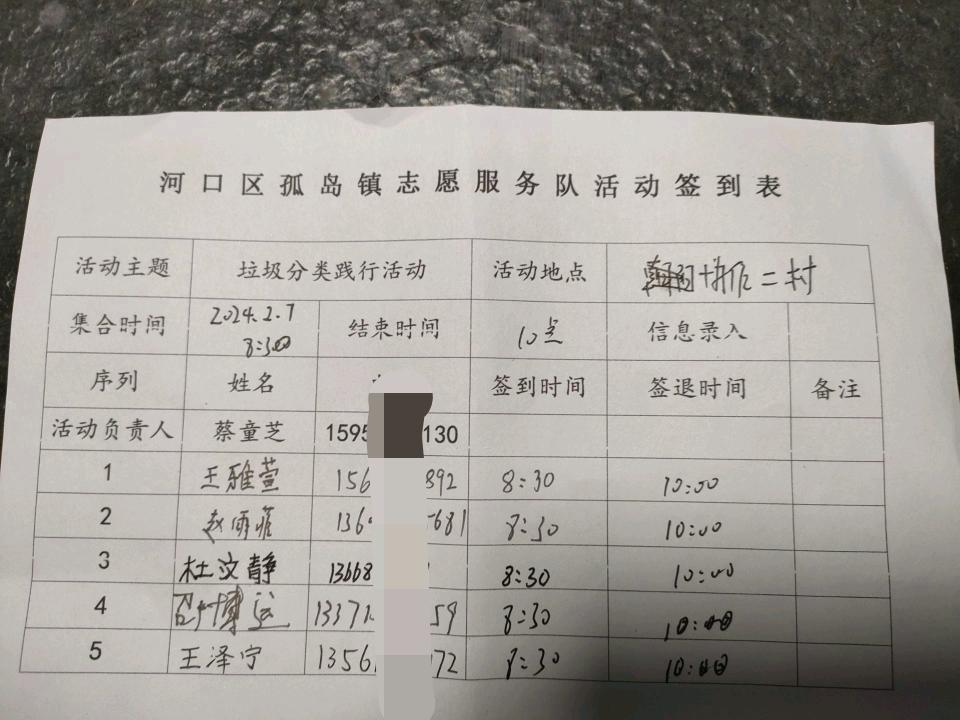 河口区孤岛镇志愿服务队活动签到表
活动主题 垃圾分类践行活动 活动地点 二村
集合时间 2024.2.7 8:30 结束时间 10点 信息录入
序列 姓名 签到时间 签退时间 备注
活动负责人 蔡童芝 1595 130
1 王雅萱 156 892 8:30 10:00
2 赵雨菲 136 681 8:30 10:00
3 杜文静 13668 8:30 10:00
4 博运 1337 59 8:30 10:00
5 王泽宁 1356 72 8:30 10:00